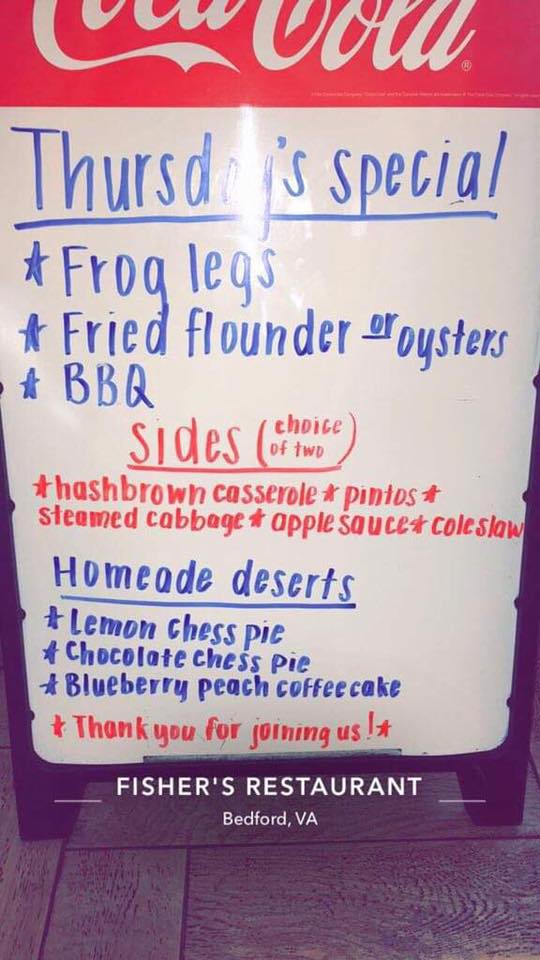 Coca Cola
Thursday's special
* Frog legs
* Fried flounder or oysters
* BBQ
Sides (choice of two)
*hashbrown casserole * pintos *
steamed cabbage * applesauce * coleslaw
Homeade deserts
* Lemon chess pie
* Chocolate chess pie
* Blueberry peach coffeecake
* Thank you for joining us! *
FISHER'S RESTAURANT
Bedford, VA